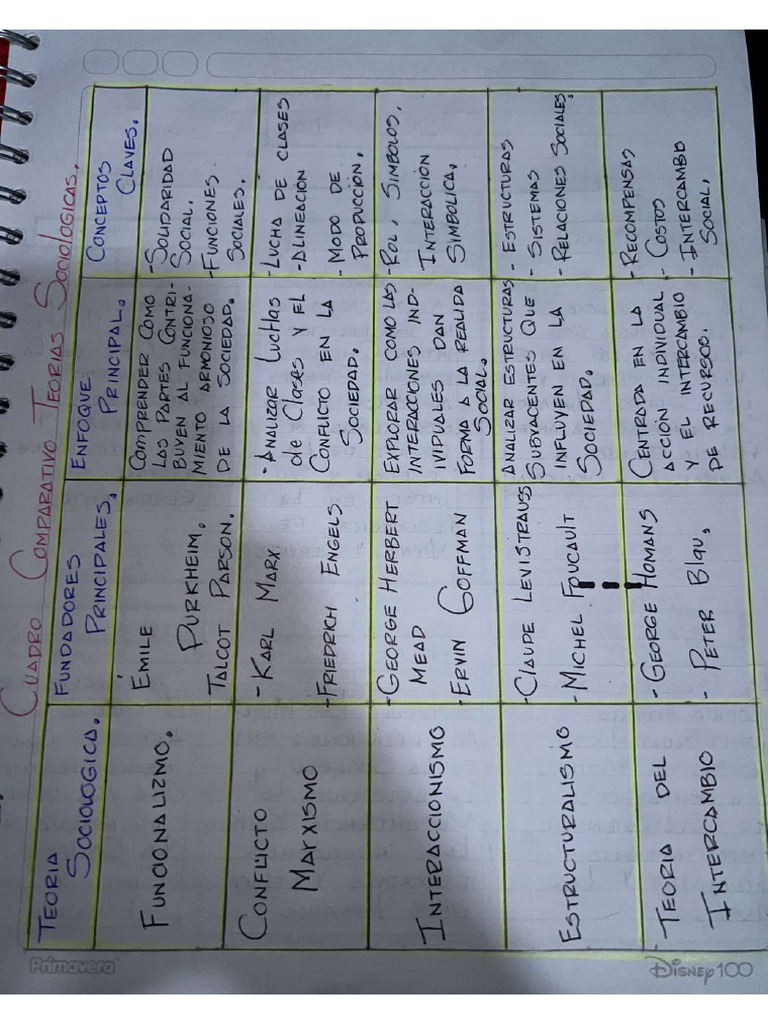 CUADRO COMPARATIVO TEORIAS SOCIOLOGICAS.
TEORIA
SOCIOLOGICA.
FUNDADORES
PRINCIPALES.
ENFOQUE
PRINCIPAL.
CONCEPTOS
CLAVES.
FUNCIONALIZMO.
ÉMILE
PURKHEIM.
TALCOT PARSON.
COMPRENDER COMO
LAS PARTES CONTRI-
BUYEN AL FUNCIONA-
MIENTO ARMONIOSO
DE LA SOCIEDAD.
-SOLIDARIDAD
SOCIAL.
-FUNCIONES
SOCIALES.
CONFLICTO
MARXISMO
-KARL MARX.
-FRIEDRICH ENGELS
-ANALIZAR LUCHAS
de CLASES Y EL
CONFLICTO EN LA
SOCIEDAD.
-LUCHA DE CLASES
-ALINEACIÓN
- MODO DE
PRODUCCIÓN.
INTERACCIONISMO
-GEORGE HERBERT
MEAD
-ERVIN GOFFMAN
EXPLORAR COMO LAS
INTERACCIONES IND-
IVIDUALES DAN
FORMA A LA REALIDA
SOCIAL.
-ROL, SIMBOLOS,
INTERACCIÓN
SIMBOLICA.
ESTRUCTURALISMO
-CLAUPE LEVISTRAUSS
-MICHEL FOUCAULT
ANALIZAR ESTRUCTURAS
SUBYACENTES QUE
INFLUYEN EN LA
SOCIEDAD.
- ESTRUCTURAS
- SISTEMAS
- RELACIONES SOCIALES.
TEORIA DEL
INTERCAMBIO
- GEORGE HOMANS
- PETER BLAU.
CENTRADA EN LA
ACCIÓN INDIVIDUAL
Y EL INTERCAMBIO
DE RECURSOS.
-RECOMPENSAS
- COSTOS
- INTERCAMBIO
SOCIAL.
Primavera
DISNEY100